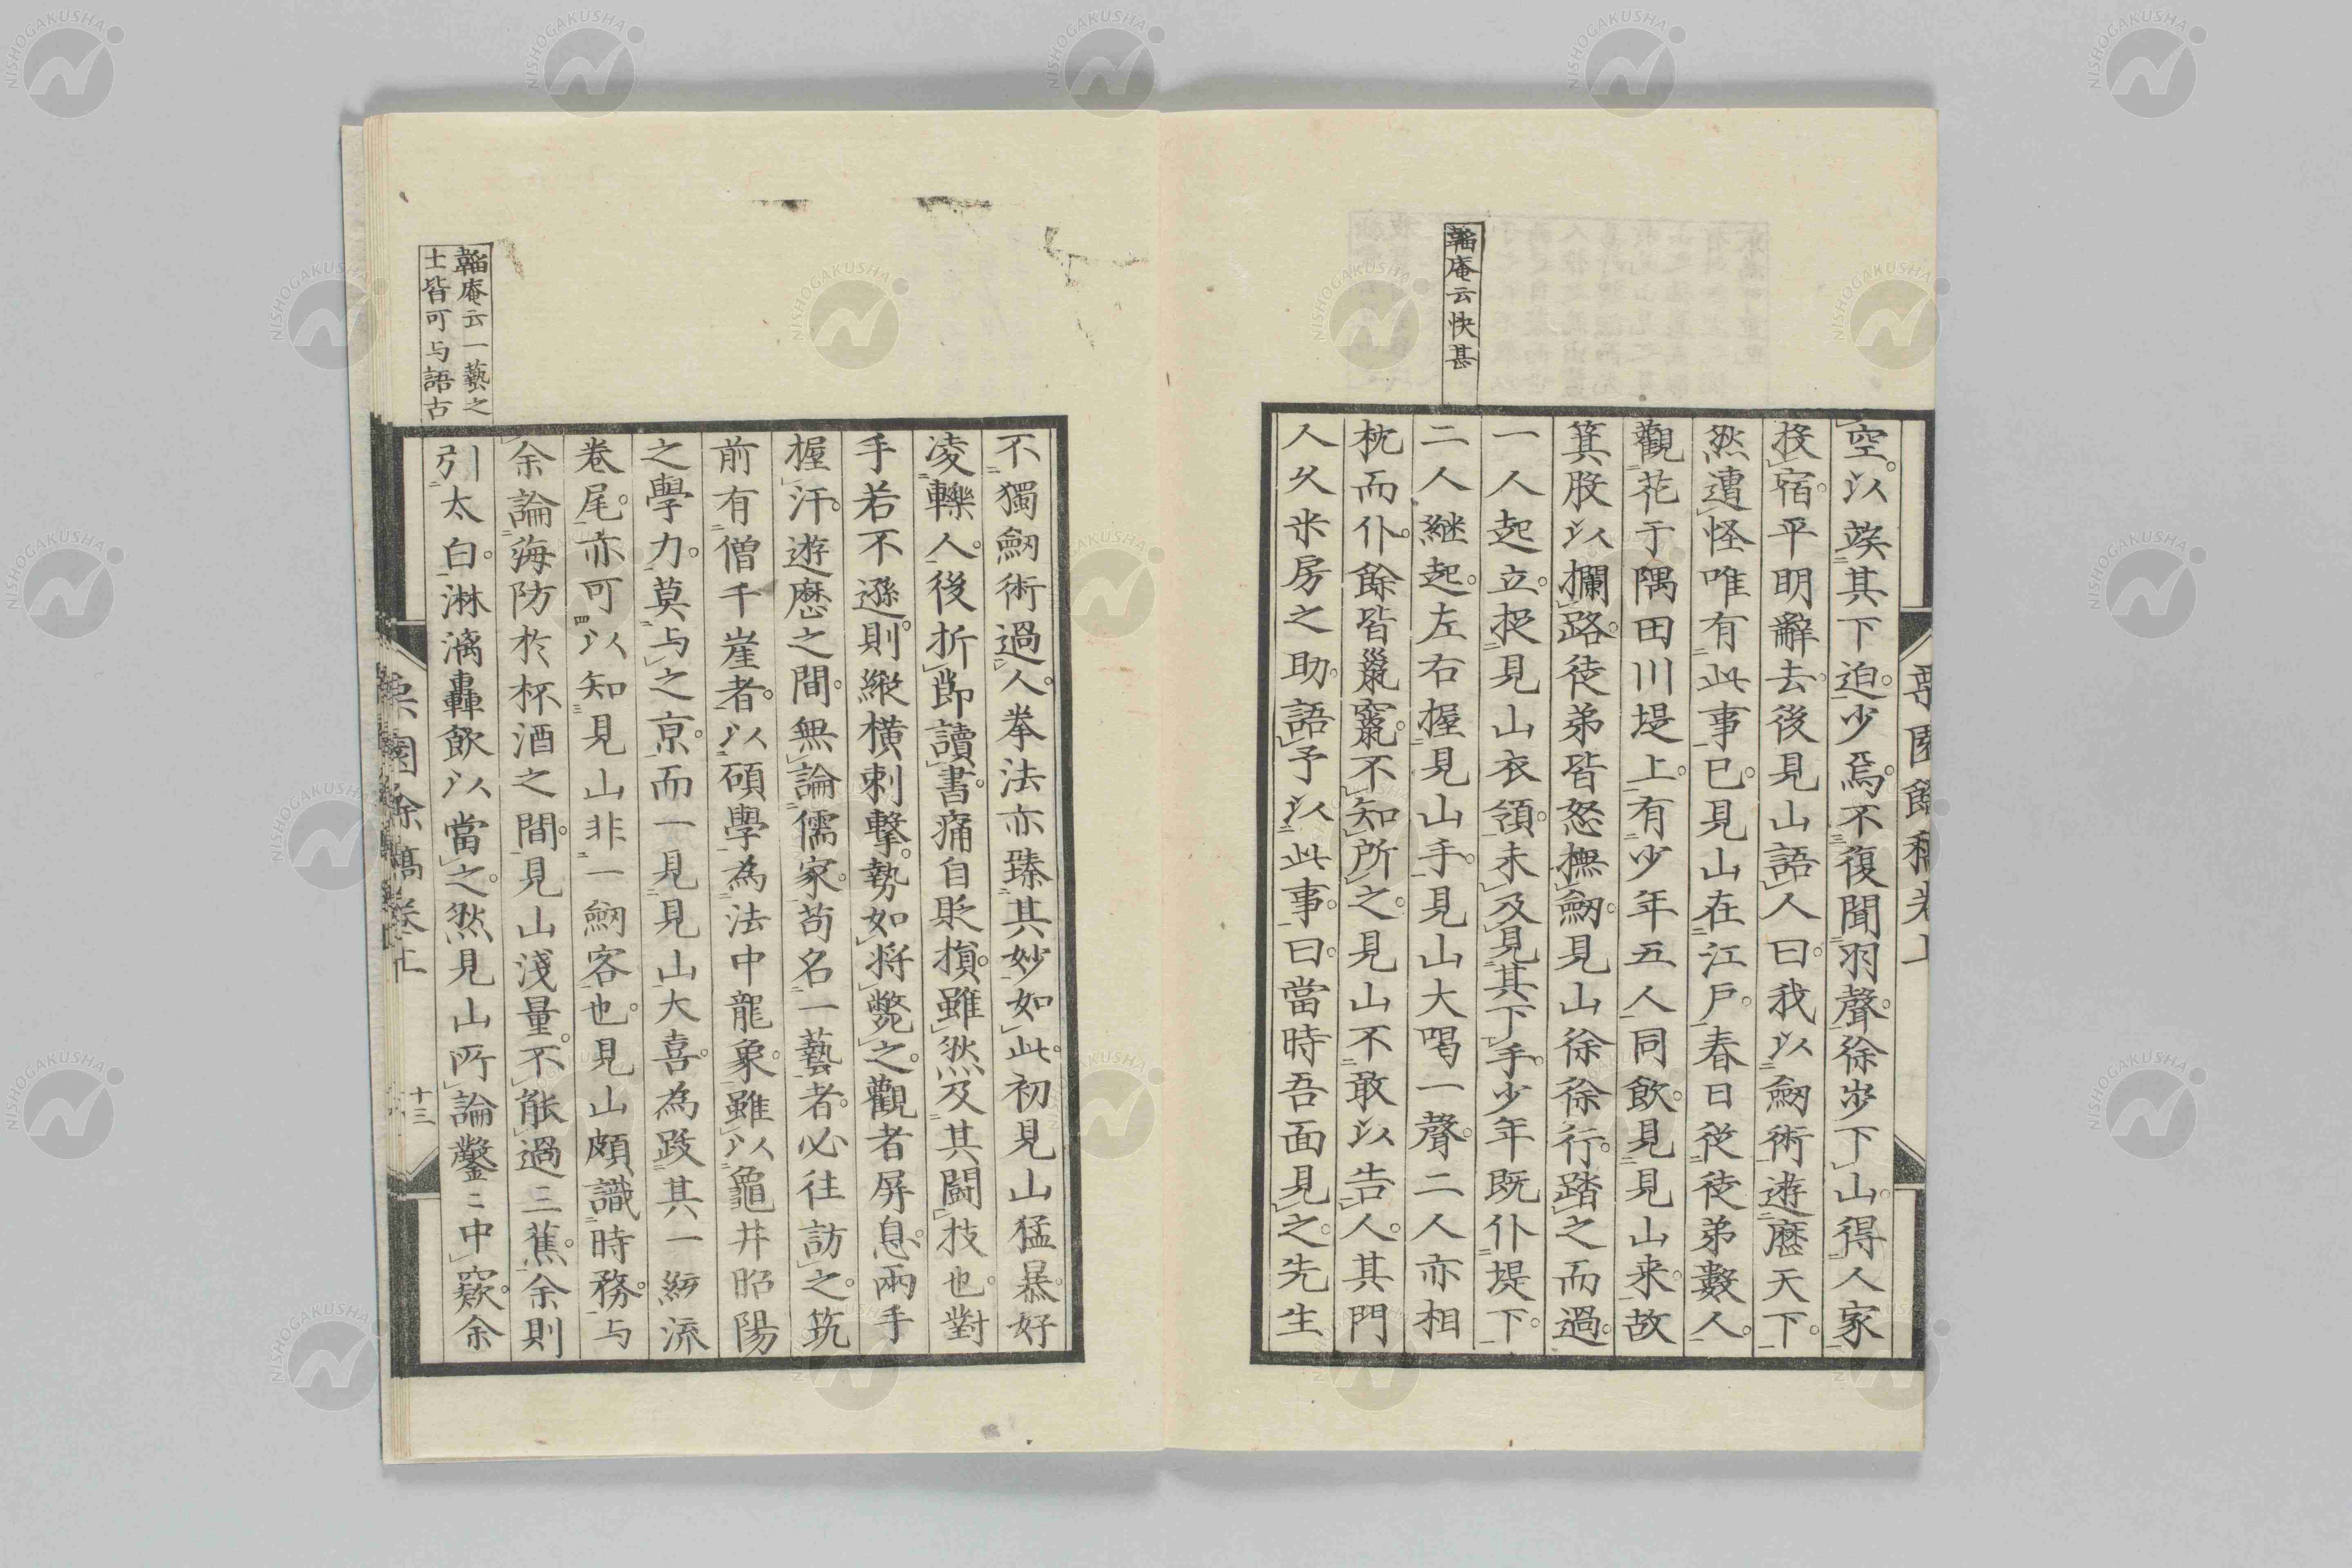 韜庵云快甚
空以竢其下迫少焉不復聞羽聲徐步下山得人家
投宿平明辭去後見山語人曰我以劒術遊歷天下
然遭怪唯有此事已見山在江戶春日從徒弟數人
觀花于隅田川堤上有少年五人同飲見見山来故
箕股以攔路徒弟皆怒撫劒見山徐徐行踏之而過
一人起立捉見山衣領未及見其下手少年既仆堤下
二人継起左右握見山手見山大喝一聲二人亦相
枕而仆餘皆巢竄不知所之見山不敢以告人其門
人久米房之助語予以此事曰當時吾面見之先生
韜庵云一藝之
士皆可与語古
不獨劒術過人拳法亦臻其妙如此初見山猛暴好
凌轢人後折節讀書痛自貶損雖然及其闘技也對
手若不遜則縱橫刺擊勢如將斃之觀者屏息兩手
握汗遊歷之間無論儒家苟名一藝者必往訪之筑
前有僧千崖者以碩學為法中龍象雖以龜井昭陽
之學力莫与之京而一見見山大喜為跋其一綹流
卷尾亦可以知見山非一劒客也見山頗識時務与
余論海防於杯酒之間見山淺量不能過三蕉余則
引太白淋漓轟飲以當之然見山所論鑿〻中窾余
園餘稿卷上
十三
NISHOGAKUSHA